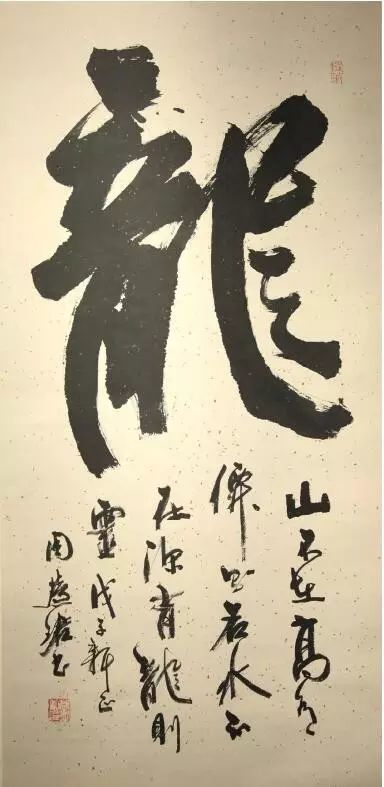 龍
山不在高有
僊則名水不
在深有龍則
靈 戊子新正
周慧珺書